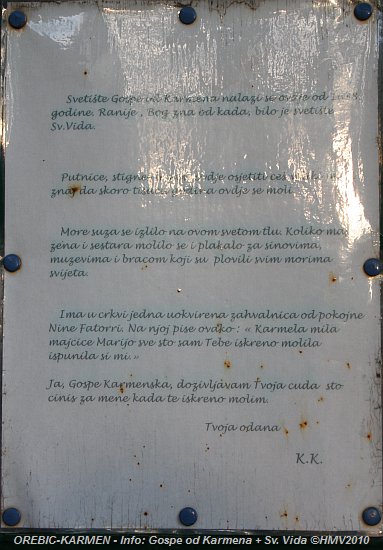 Svetište Gospe od Karmena nalazi se ovdje od
godine. Ranije , Bog zna od kada, bilo je svetište
Sv.Vida.
Putnice, stigneš osjetiti ćeš
da skoro tisuću godina ovdje se moli
More suza se izlilo na ovom svetom tlu. Koliko
žena i sestara molilo se i plakalo za sinovima,
muzevima i bracom koji su plovili svim morima
svijeta.
Ima u crkvi jedna uokvirena zahvalnica od pokojne
Nine Fatorri. Na njoj pise ovako : « Karmela mila
majcice Marijo sve sto sam Tebe iskreno molila
ispunila si mi.»
Ja, Gospe Karmenska, dozivljavam Tvoja cuda sto
cinis za mene kada te iskreno molim.
Tvoja odana
K.K.
OREBIC-KARMEN - Info: Gospe od Karmena + Sv. Vida ©HMV2010